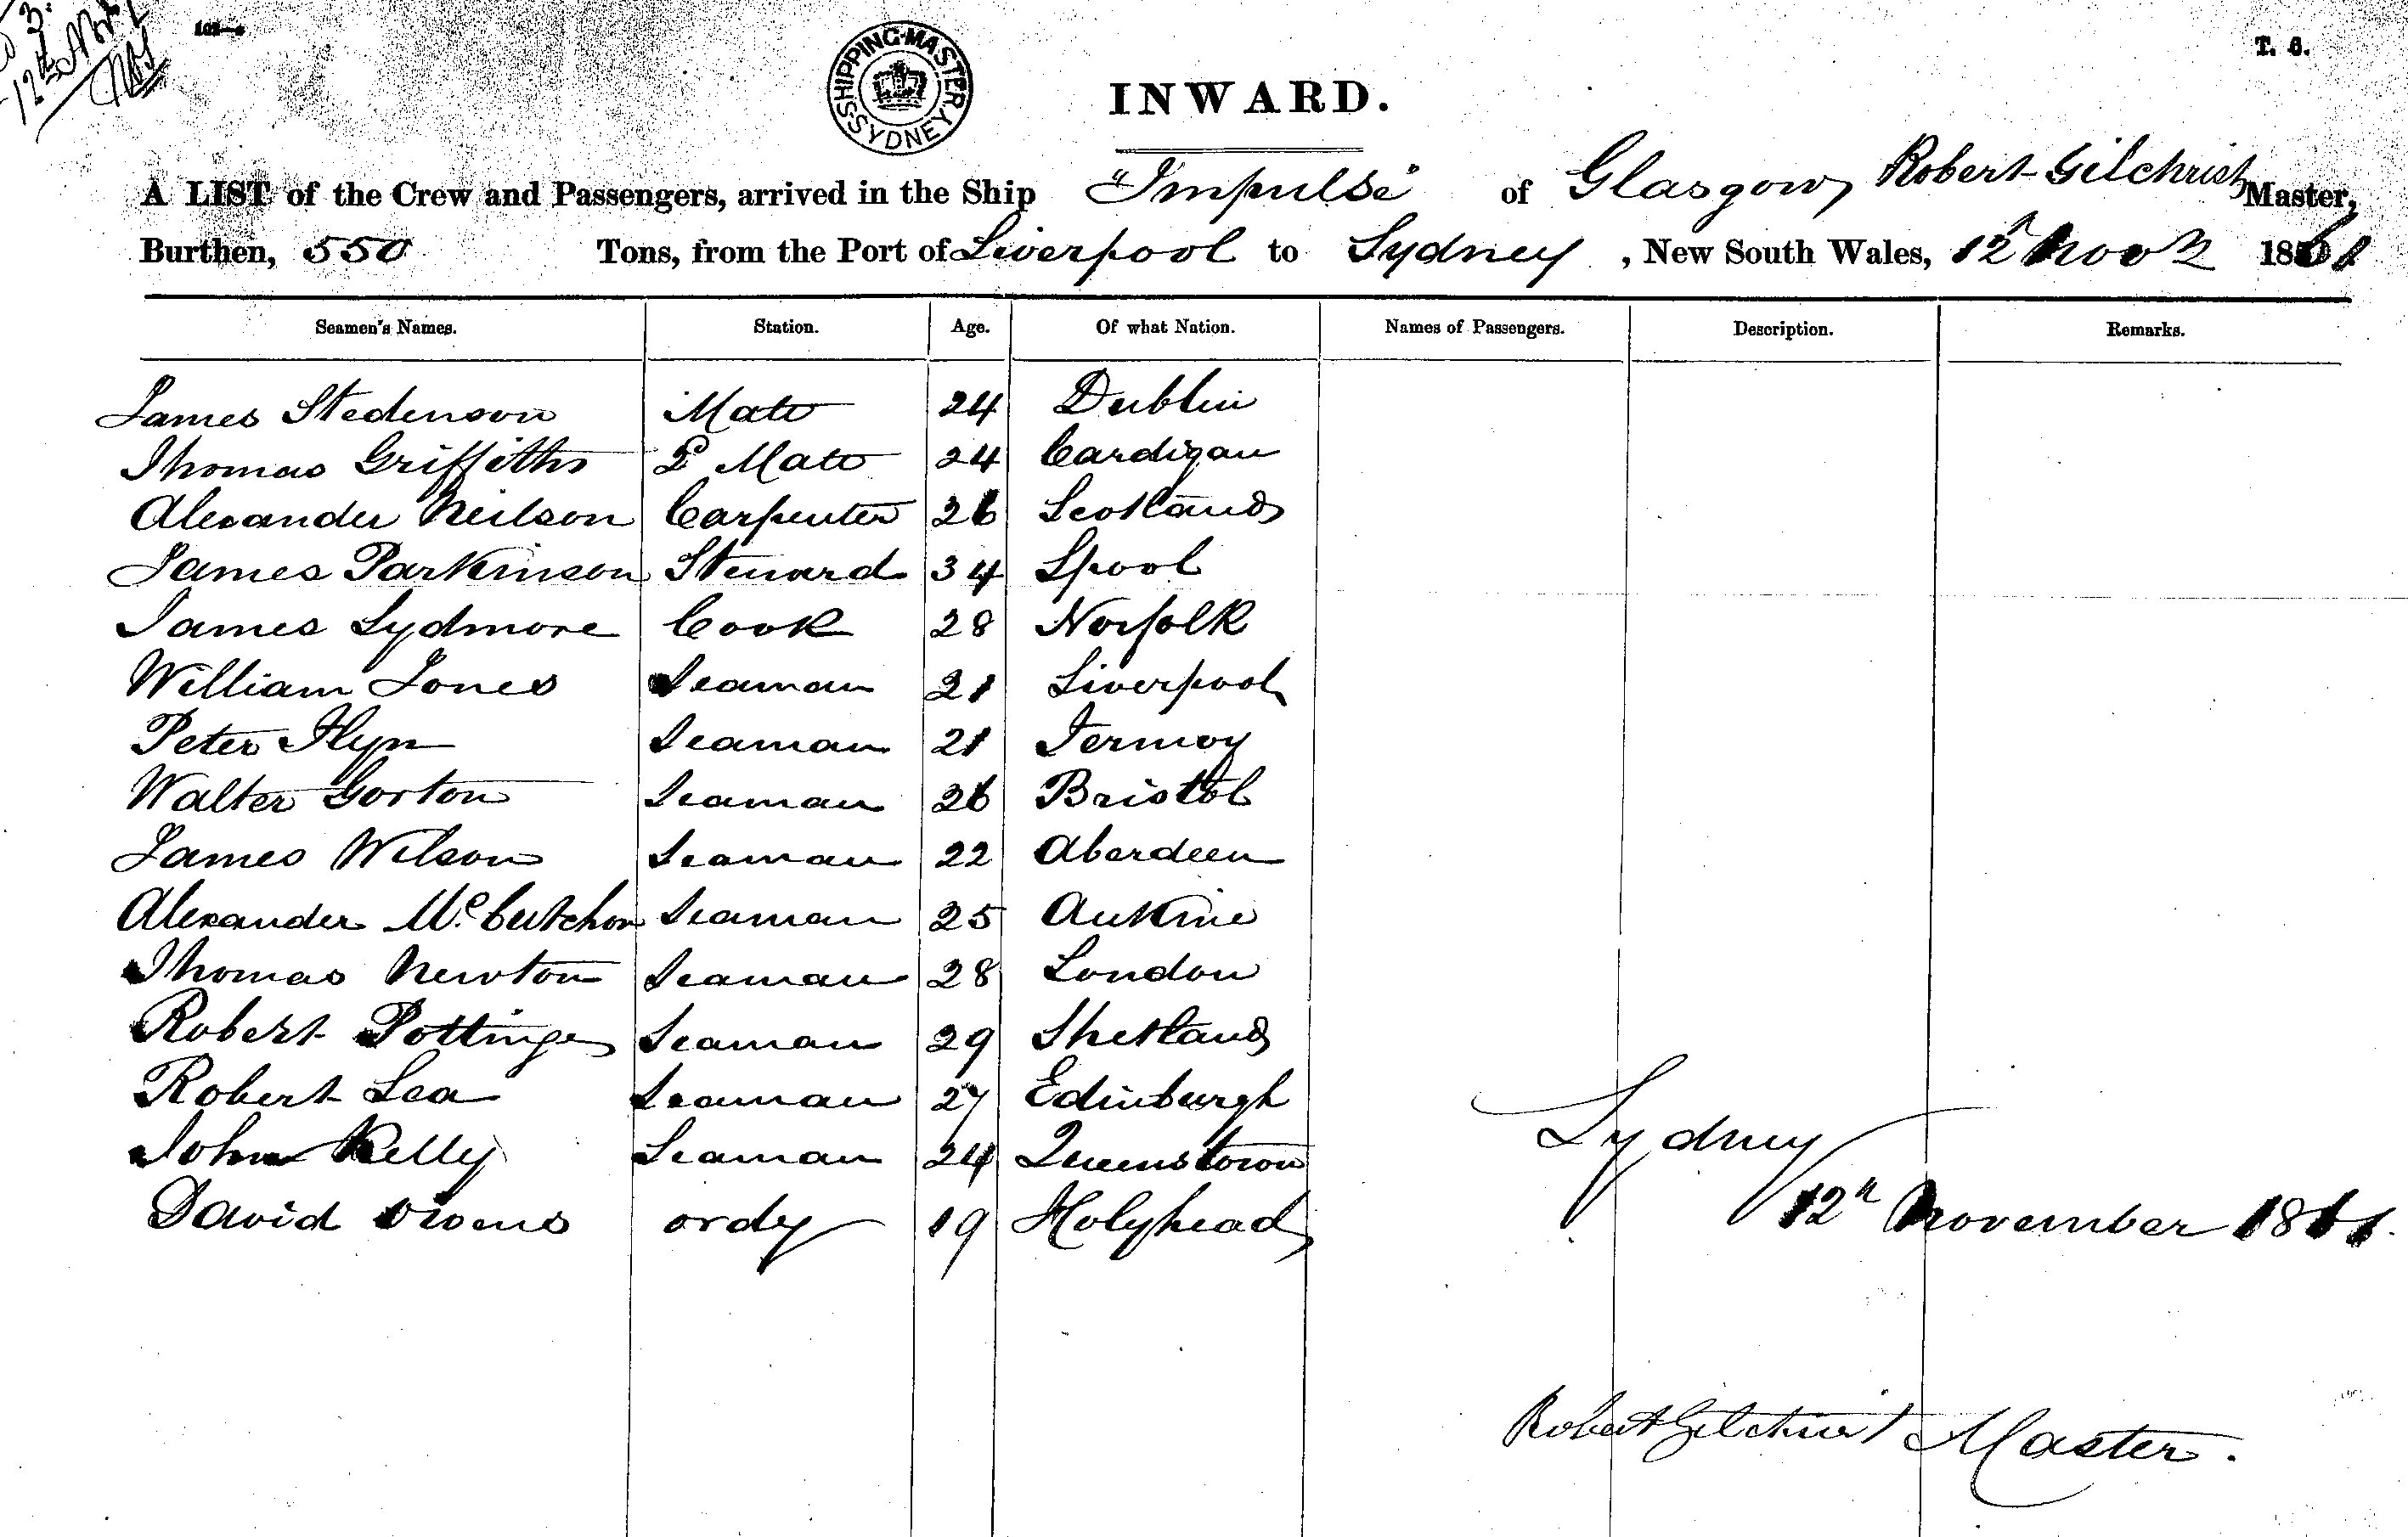 3.
12th Nov
102—a
SHIPPING MASTER SYDNEY
T. 6.
INWARD.
A LIST of the Crew and Passengers, arrived in the Ship "Impulse" of Glasgow, Robert Gilchrist Master,
Burthen, 550 Tons, from the Port of Liverpool to Sydney, New South Wales, 12th Novr 1861
Seamen's Names. Station. Age. Of what Nation. Names of Passengers. Description. Remarks.
James Stedenson Mate 24 Dublin
Thomas Griffiths 2d Mate 24 Cardigan
Alexander Neilson Carpenter 26 Scotland
James Parkinson Steward 34 Lpool
James Sydmore Cook 28 Norfolk
William Jones Seaman 21 Liverpool
Peter Flyn Seaman 21 Fermoy
Walter Gorton Seaman 26 Bristol
James Wilson Seaman 22 Aberdeen
Alexander McCutchon Seaman 25 Aukine
Thomas Newton Seaman 28 London
Robert Pottinger Seaman 29 Shetland
Robert Lea Seaman 27 Edinburgh
John Kelly Seaman 24 Queenstown
David Owens ordy 19 Holyhead
Sydney
12th November 1861.
Robert Gilchrist Master.